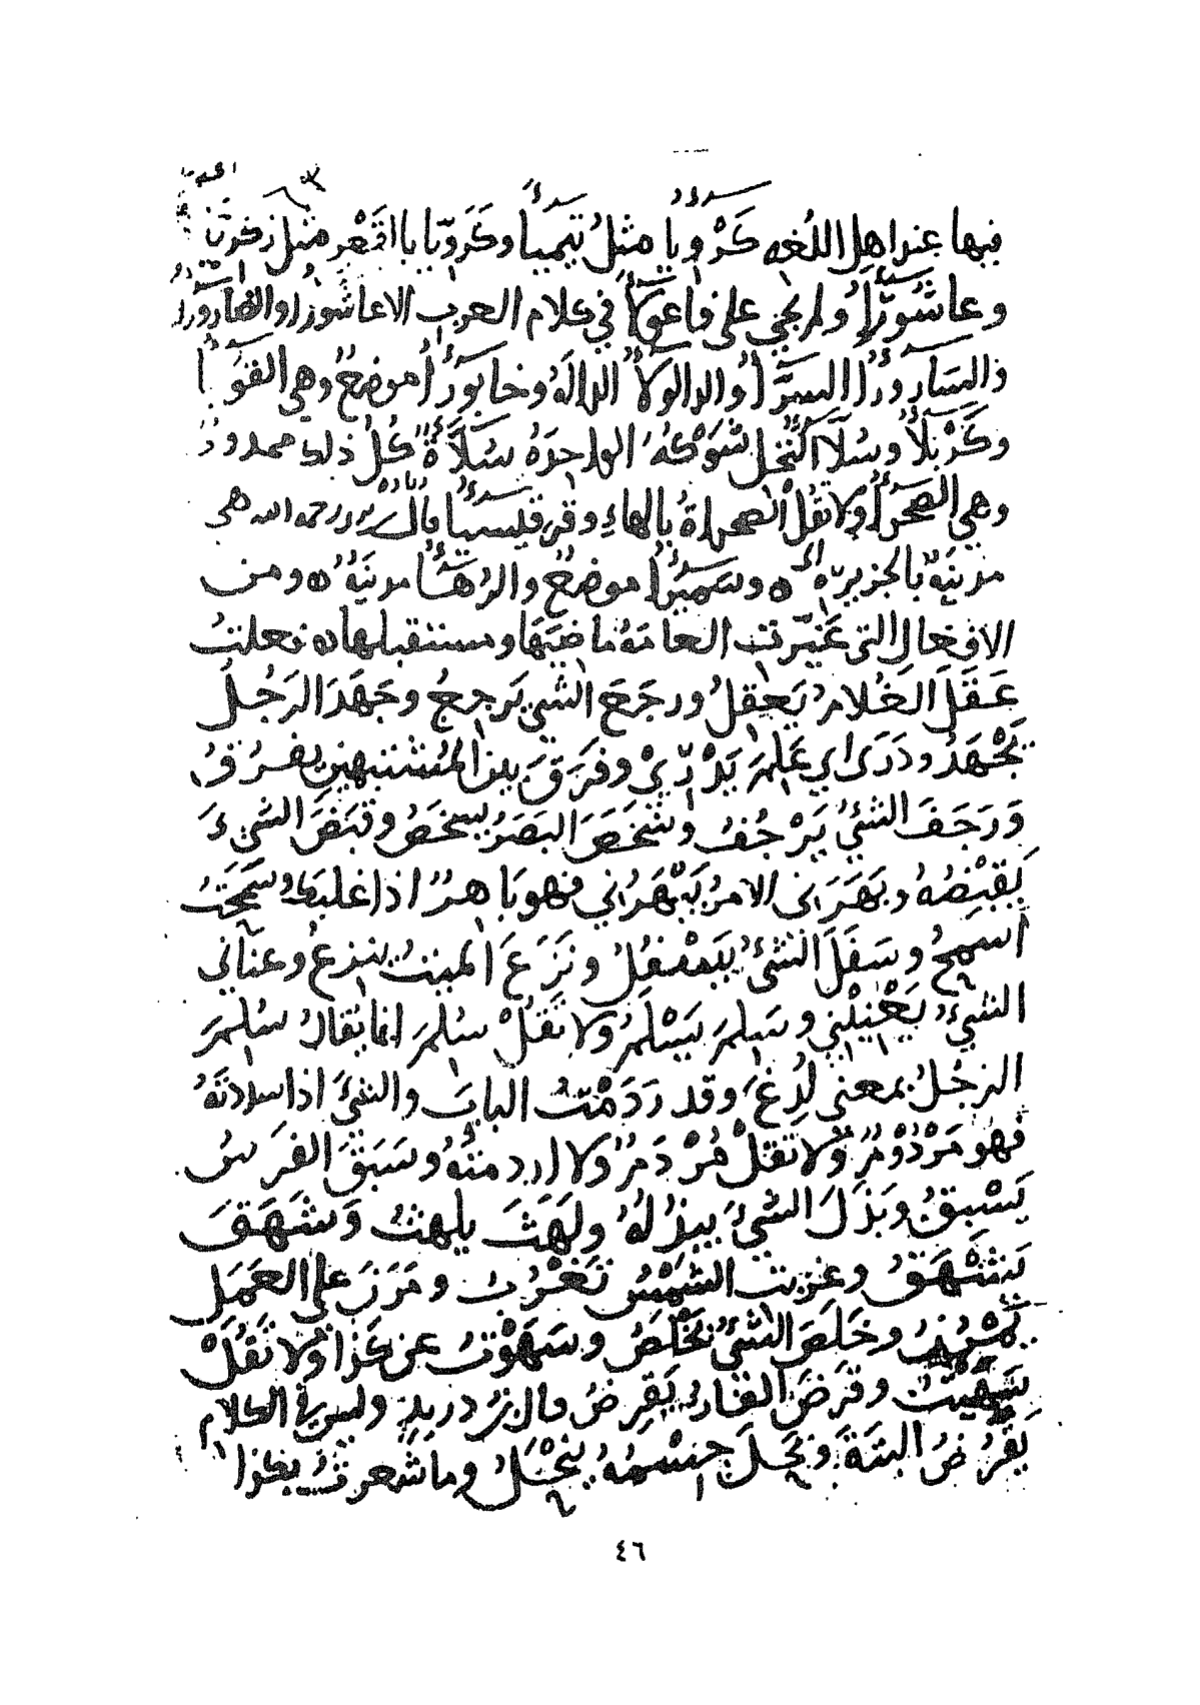 فيها عند اهل اللغه كَرْوِيّا مثلُ تيميا وكَرَوِيّا يا اقَصْر مثل زكريّا
وعاشُورَاءُ ولم يجي على فاعولاء في كلام العرب الا عاشوراء والضارورا
ذالسارورا السرّاء والدالولاء الدالّه وخابوراء موضعٌ وهي القوبا
وكَرْبلاءُ وسُلّاءُ النخل شوكُهُ الواحدَةُ سُلّاءَةٌ كُلُّ ذلك ممدودٌ
وهي الصَحراءُ ولا تقُل الصحراةُ بالهاءِ وقرقيسياءُ قال رحمه الله هي
مدينةٌ بالجزيره وسَميراءُ موضعٌ والرُهاءُ مدينةٌ ه ومن
الافعال التي غيّرت العامةُ ماضيَها ومستقبلها ه فعلت
عَقَلَ الغُلامُ يَعقِلُ ورجَعَ الشيُ يَرجِعُ وجَهَدَ الرَجُلُ
يَجْهَدُ ودَرَى اي عَلِمَ يَدْرِيْ وفَرَقَ بين المُشتبهين يفرُقُ
وَرَجَفَ الشيُ يَرْجُفُ وشَخَصَ البَصَرُ يشخَصُ وقبَضَ الشيءَ
يَقبِضُهُ وبَهَرَني الامرُ يَبْهَرُني فهو باهِرٌ اذا غلبك وسَمَحْتُ
اسمَحُ وسَفَلَ الشيُ يسفُلُ ونَزَعَ الميتُ ينزِعُ وعناني
الشيُ يَعْنيْني وسَلِمَ يَسْلَمُ ولا تَقُلْ سُلِمَ انما يقالُ سُلِمَ
الرجُلُ بمعنى لُدِغَ وقد رَدَمْتُ البابَ والشيَ اذا سددتَهُ
فهو مَرْدُوْمٌ ولا تقلْ مُرْدَمٌ ولا اردمتُهُ وسَبَقَ الفَرَسُ
يَسْبِقُ وبَذَلَ الشيَ يبذُلُهُ ولَهَثَ يلهثُ وَشَهَقَ
يَشْهَقُ وغربت الشَمْسُ تَغْرُبُ ومَرَنَ على العَمَلِ
يَمْرُنُ وخَلَصَ الشيُ يَخْلُصُ وسَهَوْتُ عن كذا ولا تَقُلْ
سَهَيْتُ وقَرَضَ الفارُ يَقرِضُ قال بن دريدٍ وليس في الكلام
يقرُضُ البتةَ ونحَلَ جِسْمُهُ يَنْحَلُ وما شَعرتُ بكذا
٤٦